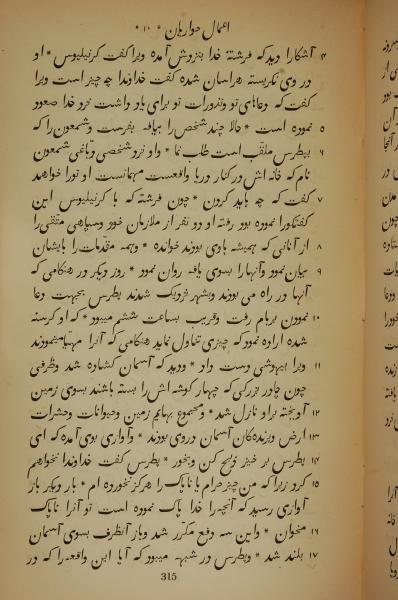 اعمال حواریان * ۱۰ *
۴ آشکارا دید که فرشتهٔ خدا بنزدش آمده ویرا گفت کرنیلیوس * او
در وی نگریسته هراسان شده گفت خداوندا چه چیز است ویرا
گفت که دعاهای تو ونذورات تو برای یاد داشت نزد خدا صعود
۵ نموده است * حالا چند شخص را بیافه بفرست وشمعون را که
۶ بپطرس ملقّب است طلب نما * واو نزد شخصی دبّاغی شمعون
نام که خانه اش در کنار دریا واقعست مهمانست او تورا خواهد
۷ گفت که چه باید کردن * چون فرشته که با کرنیلیوس این
گفتگورا نموده بود رفته او دو نفر از ملازمان خود وسپاهی متقی را
۸ از آنانی که همیشه باوی بودند خوانده * وهمه مقدّمات را بایشان
۹ بیان نمود وآنها را بسوی یافه روان نمود * روز دیگر در هنگامی که
آنها در راه می بودند وبشهر نزدیک شدند پطرس بجهت دعا
۱۰ نمودن ببام رفت وقریب بساعت ششم میبود * که او گرسنه
شده اراده نمود که چیزی تناول نماید هنگامی که آنرا مهیّا مینمودند
۱۱ ویرا بیهوشی دست داد * ودید که آسمان کشاده شد وظرفی
چون چادر بزرگی که چهار گوشه اش را بسته باشند بسوی زمین
۱۲ آویخته براو نازل شد * ومجموع بهایم زمین وحیوانات وحشرات
۱۳ ارض وپرندگان آسمان دروی بودند * وآوازی بوی آمد که ای
۱۴ پطرس بر خیز ذبح کن وبخور * پطرس گفت خداوندا نخواهم
۱۵ کرد زیرا که من چیز حرام یا ناپاک را هرگز نخورده ام * بار دیگر باز
آوازی رسید که آنچه را خدا پاک نموده است تو آنرا ناپاک
۱۶ مخوان * واین سه دفع مکرّر شد وباز آنظرف بسوی آسمان
۱۷ بلند شد * وپطرس در شبهه میبود که آیا این واقعه را که در
315